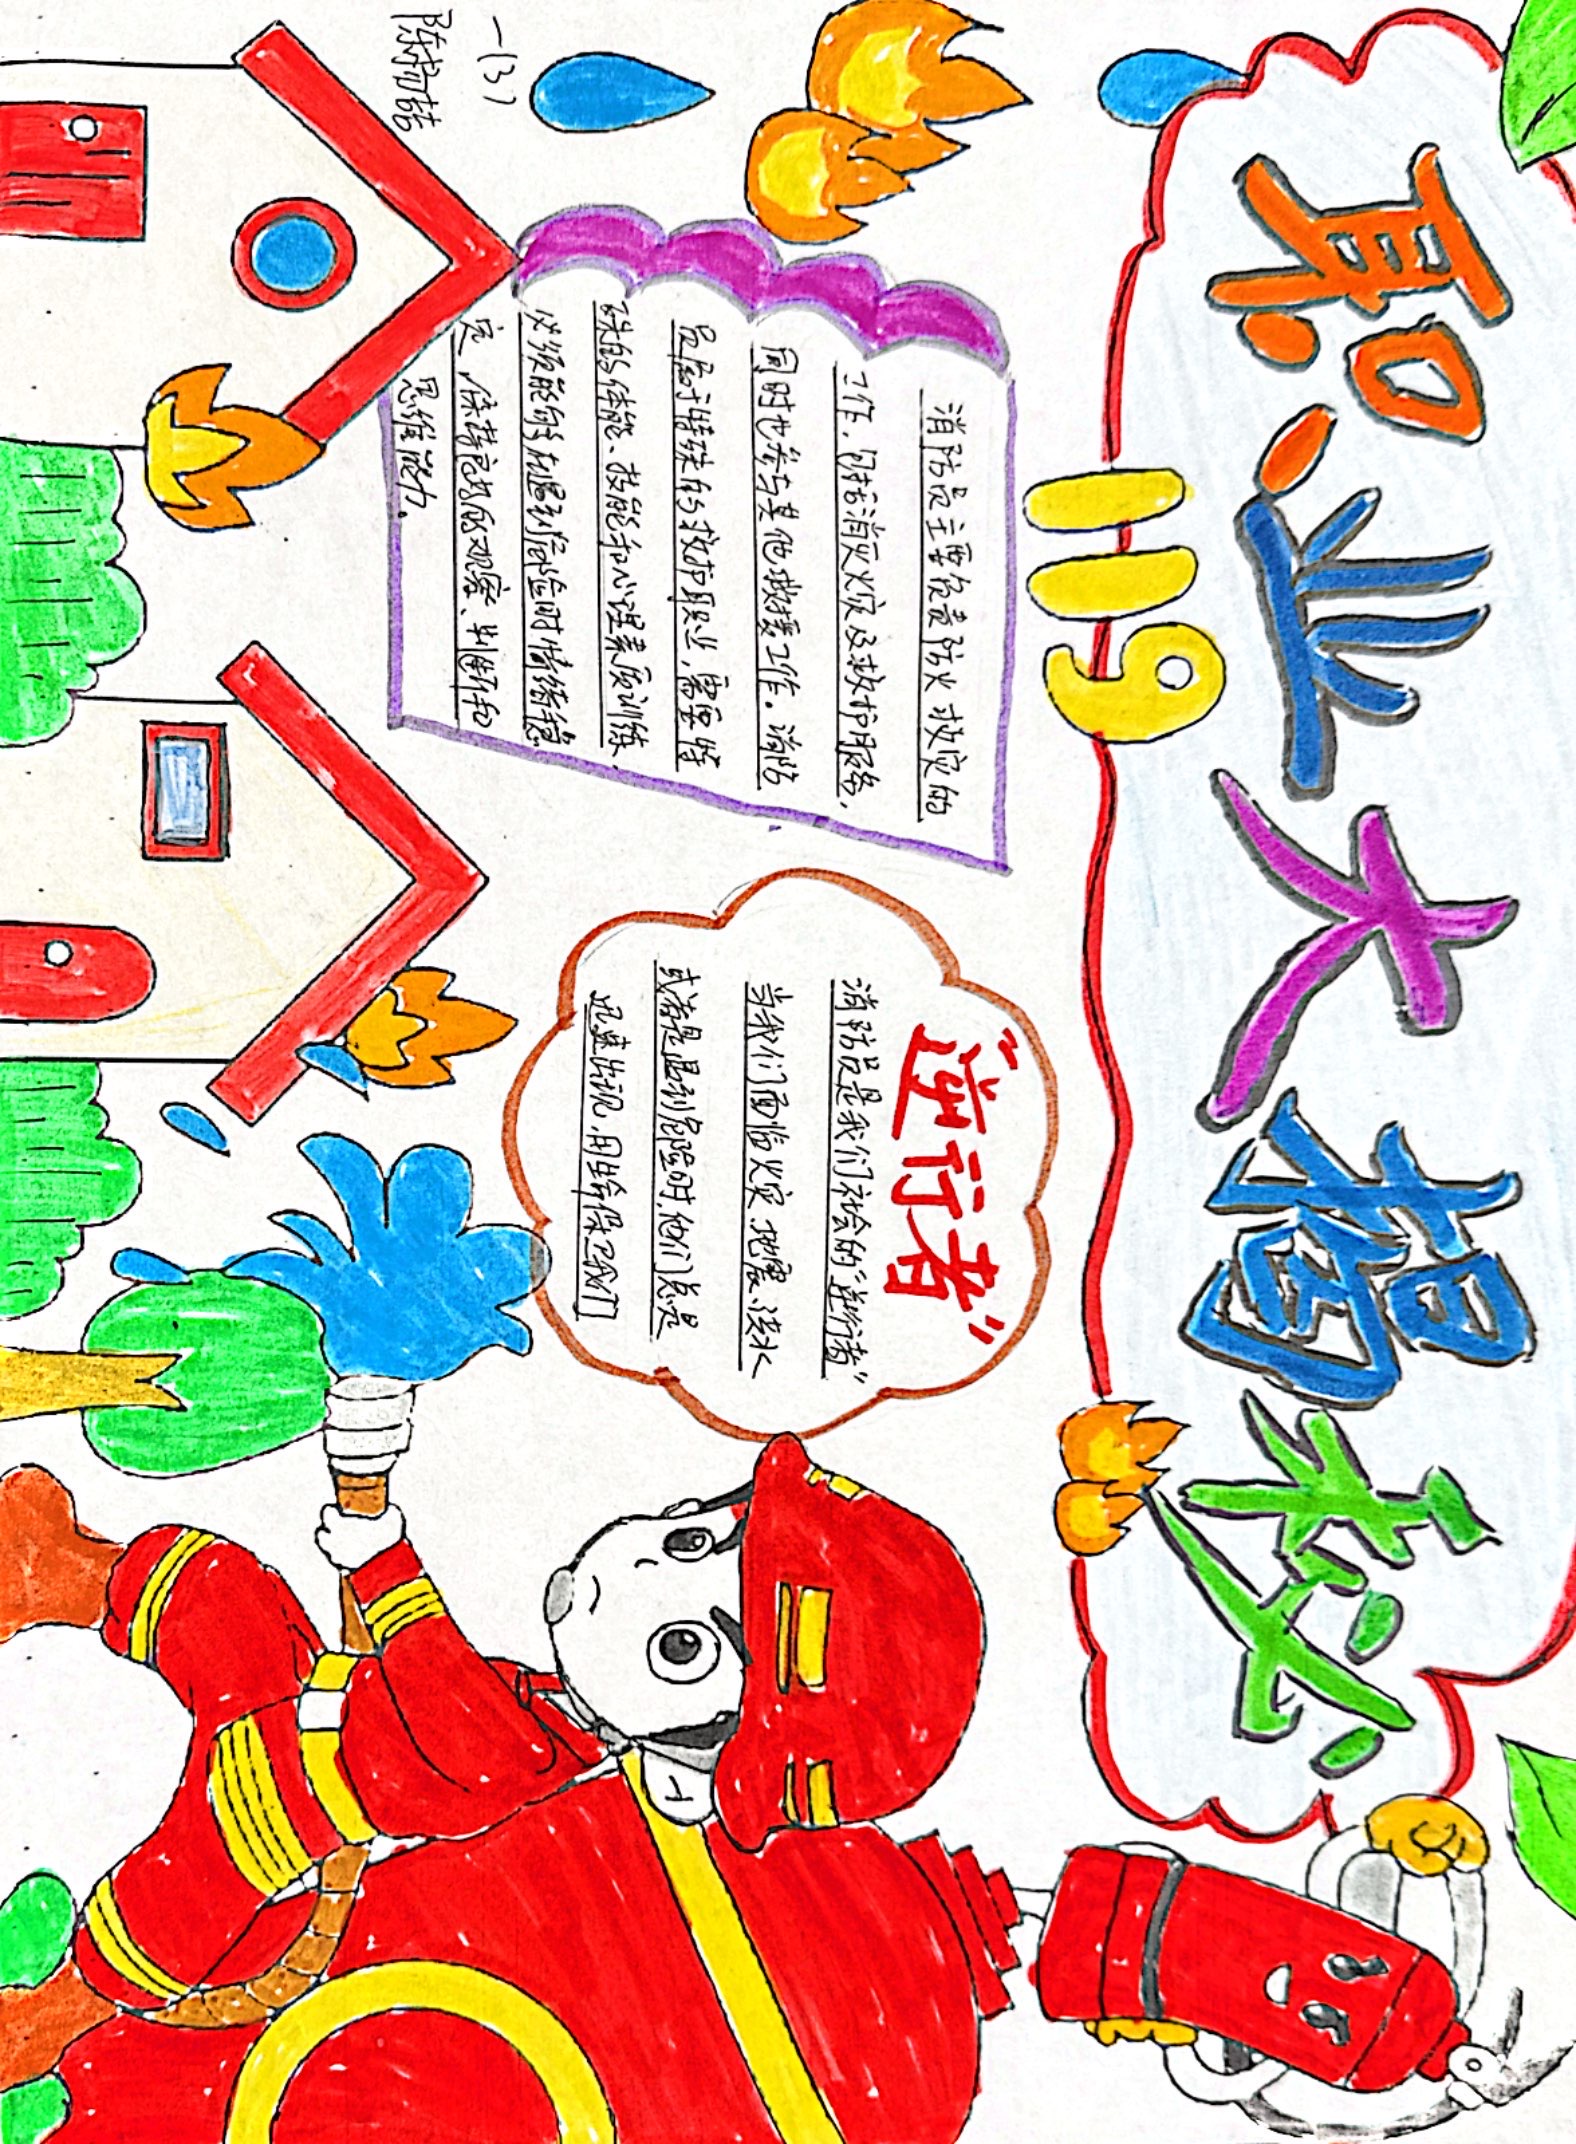 职业大揭秘
119
消防员主要负责防火救灾的
工作,包括消灭火灾及救护服务,
同时也参与其他救援工作。消防
员属于特殊的救护职业,需要特
殊的体能、技能和心理素质训练.
必须能够在遇到危险时情绪稳
定,保持良好的观察、判断和
思维能力.
"逆行者"
消防员是我们社会的"逆行者"
当我们面临火灾、地震、洪水
或者是遇到危险时,他们总是
迅速出现,用生命保卫我们
一(3)